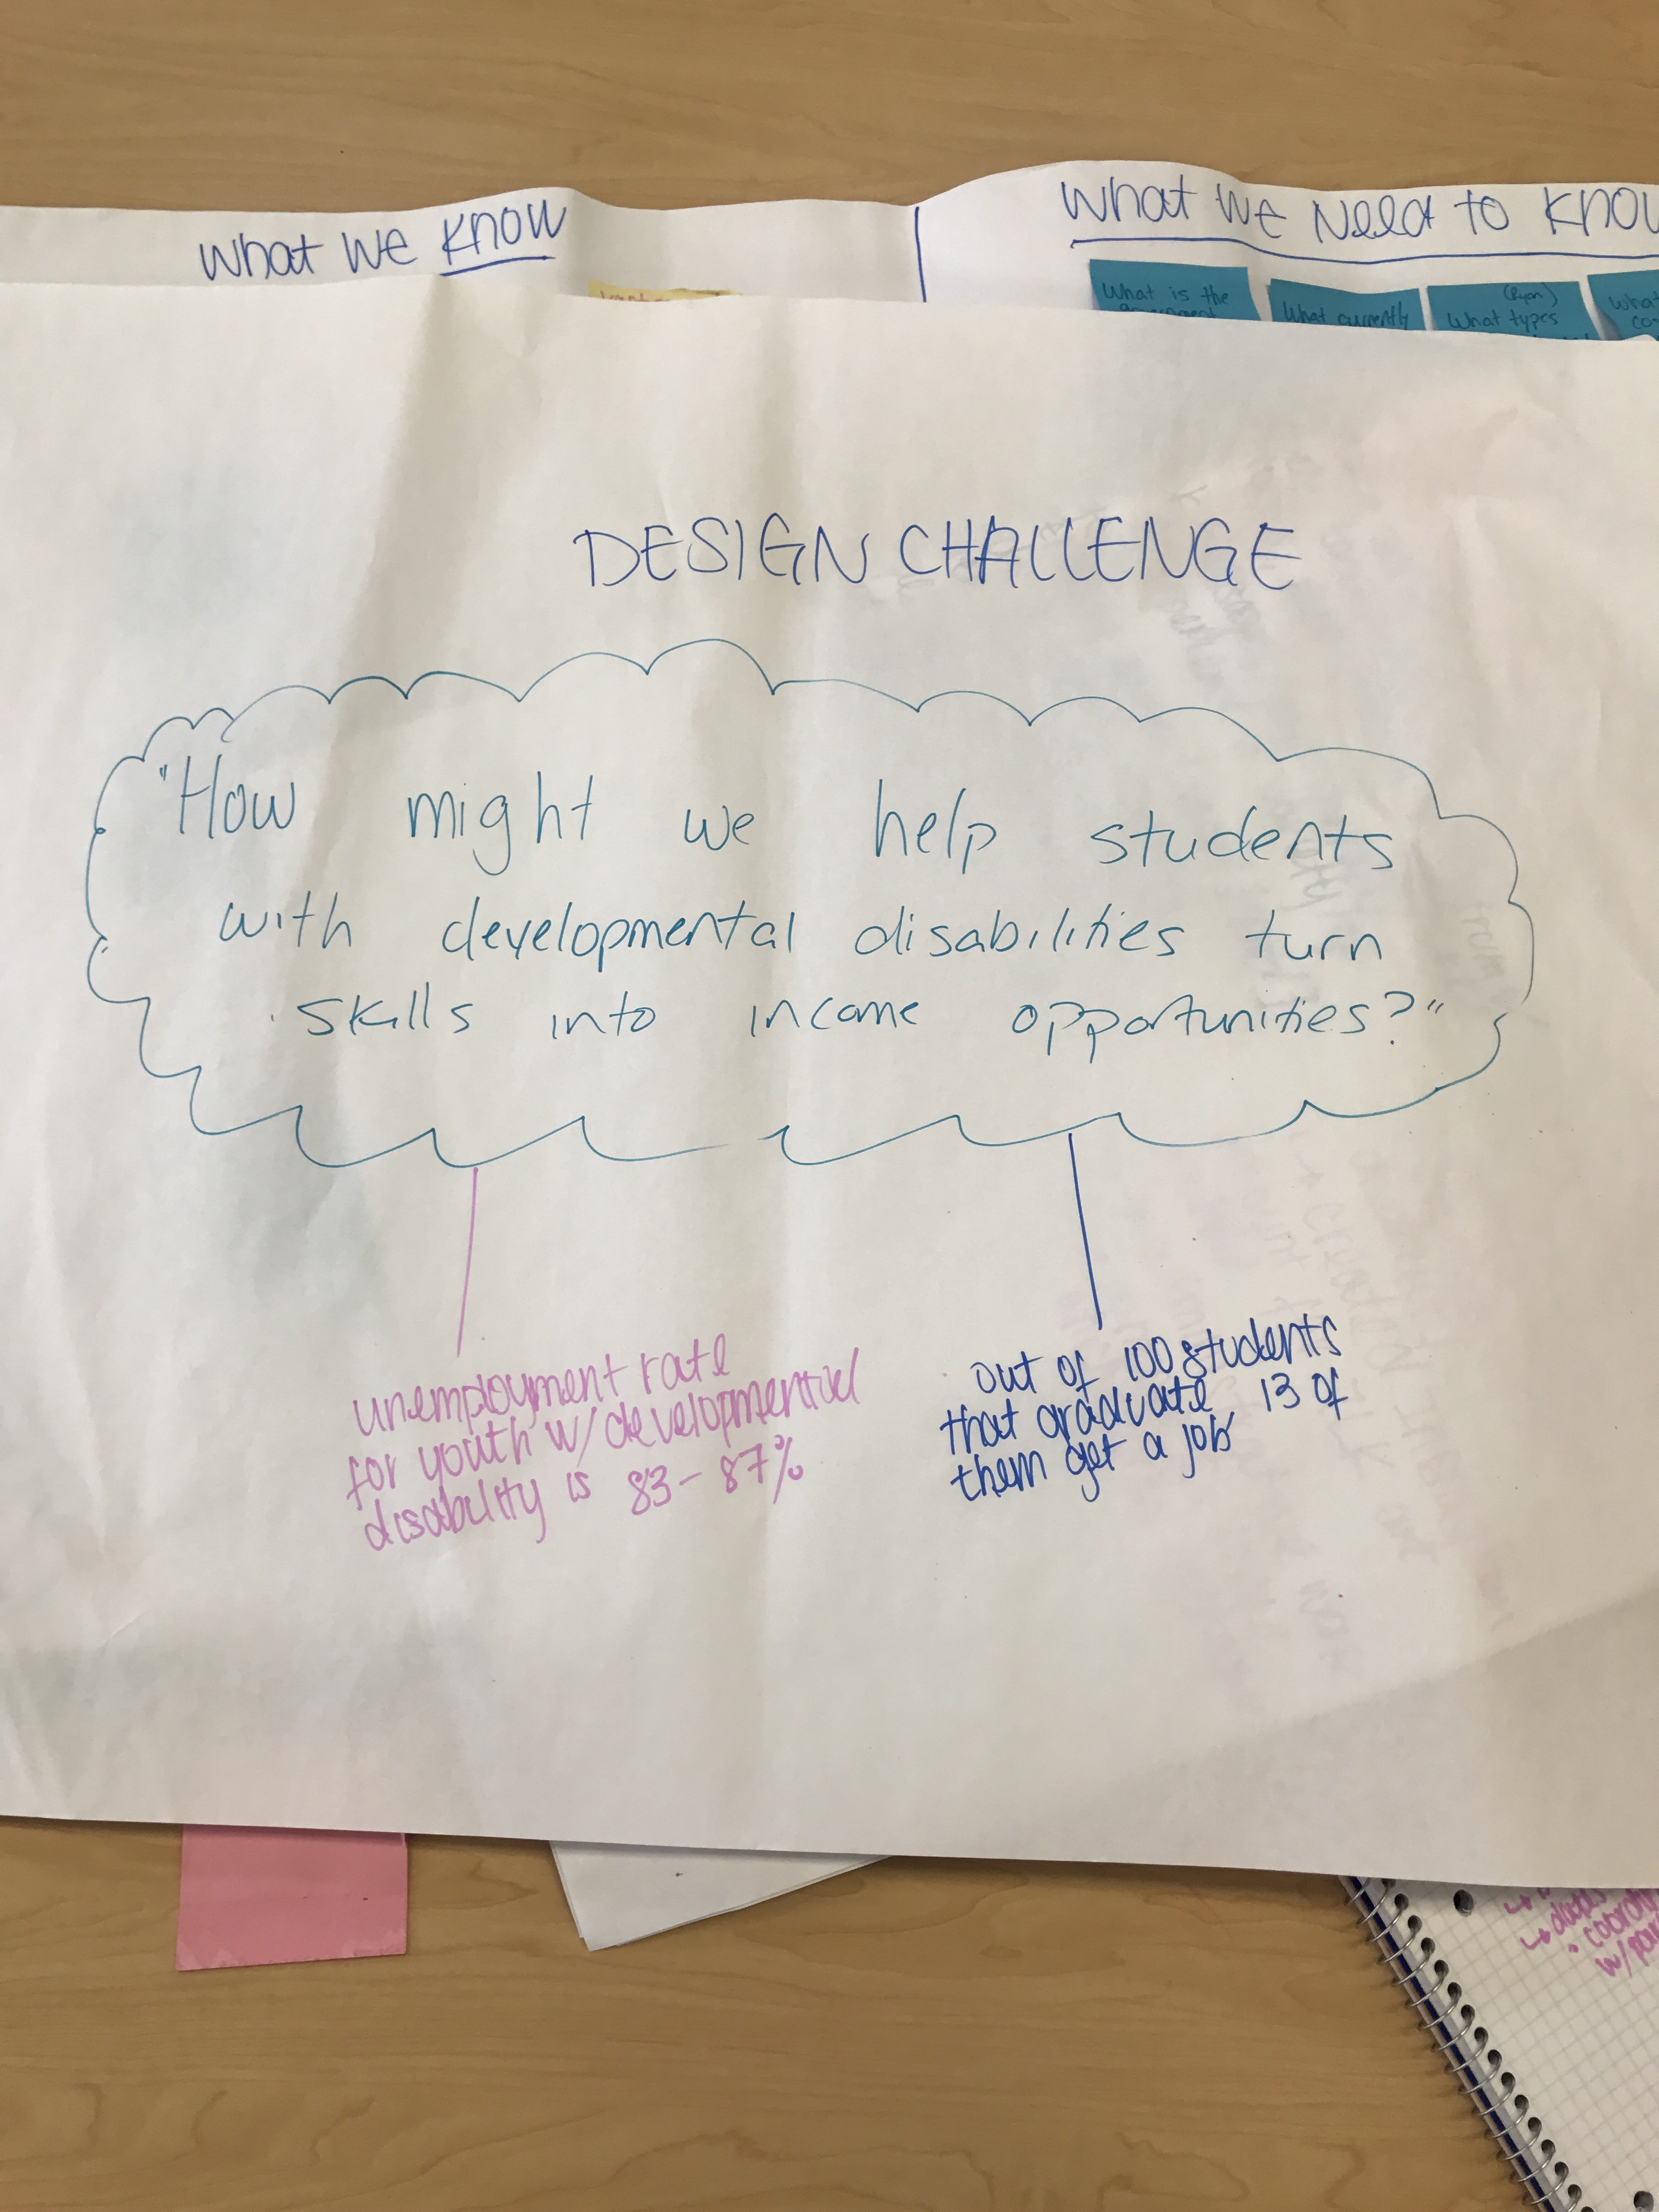 What we know
What we Need to Know
What is the
What currently
(Ryan)
What types
What
DESIGN CHALLENGE
"How might we help students
with developmental disabilities turn
skills into income opportunities?"
unemployment rate
for youth w/ developmential
disability is 83-87%
out of 100 students
that graduate 13 of
them get a job
w/